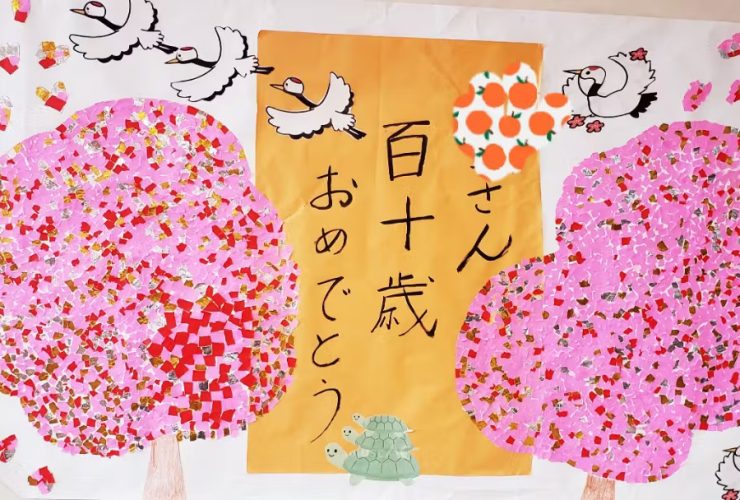 さん
百十歳
おめでとう